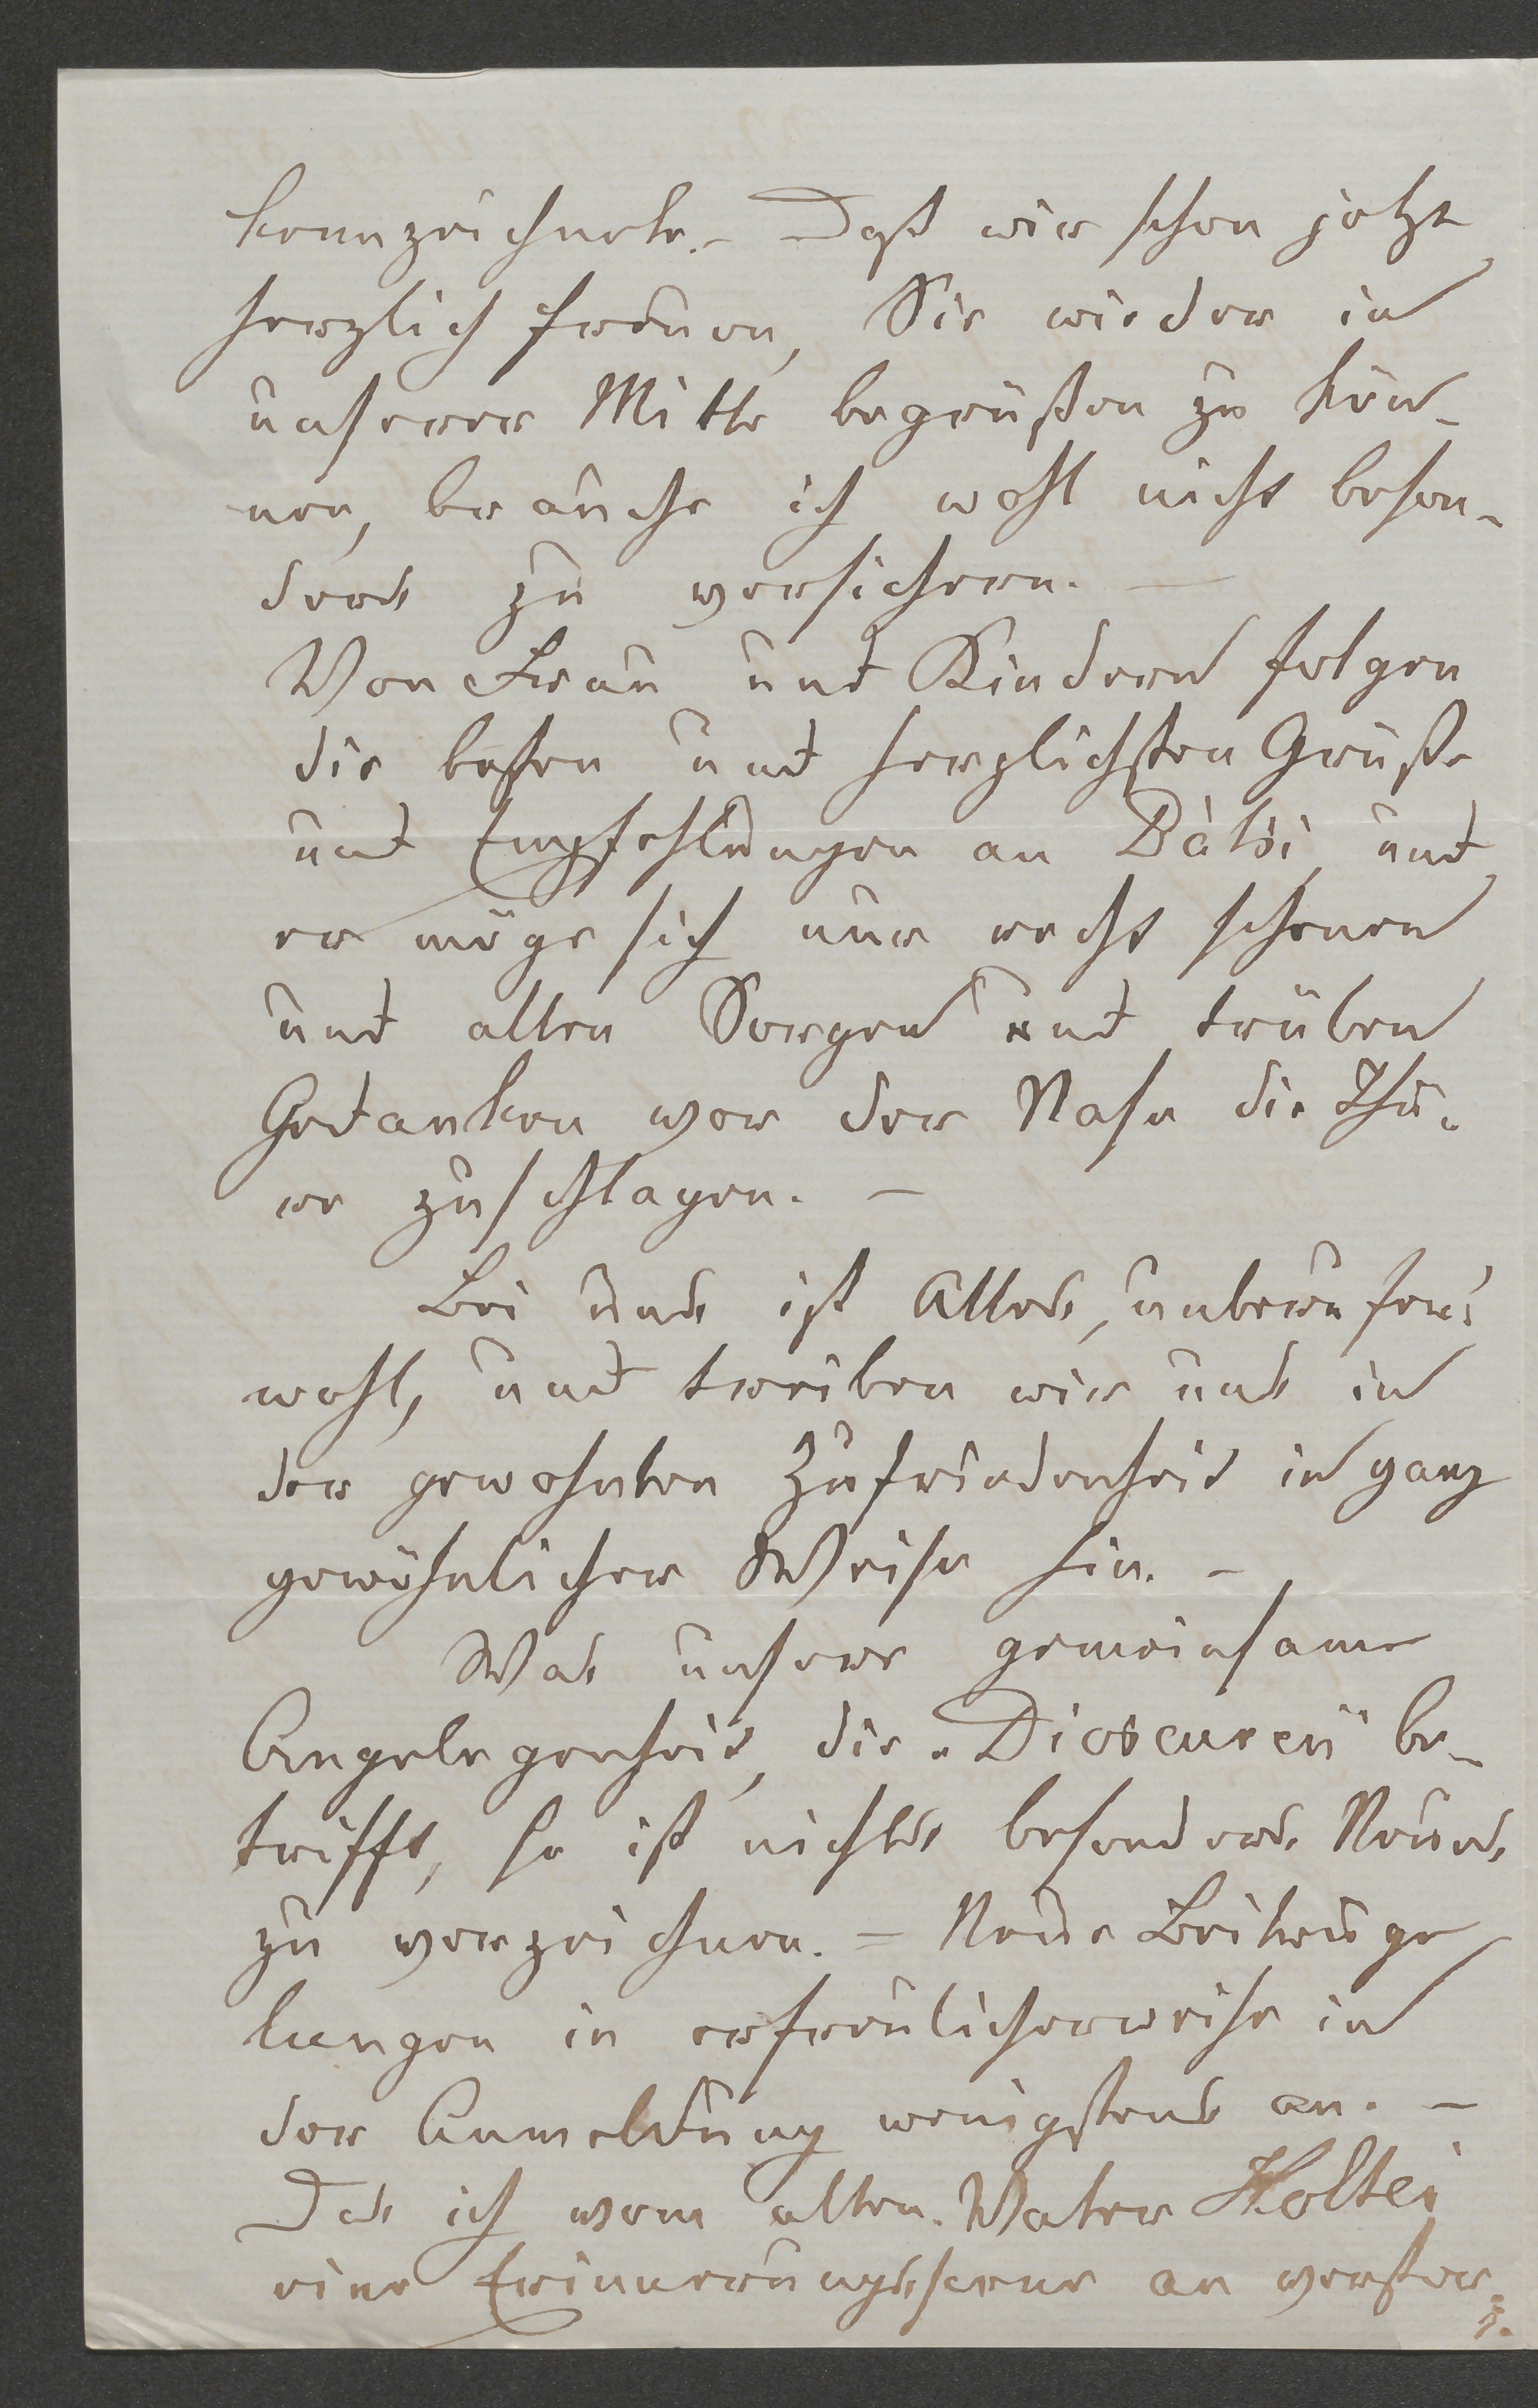 kennzeichnete. – Daß wir schon jetzt
herzlich freuen, Sie wieder in
unserer Mitte begrüßen zu kön-
nen, brauche ich wohl nicht beson-
ders zu versichern. –
Von Frau und Kindern folgen
die besten und herzlichsten Grüße
und Empfehlungen an Bátsi, und
er möge sich nur recht schonen
und allen Sorgen und trüben
Gedanken vor der Nase die Thü-
re zuschlagen. –
Bei uns ist Alles, unberufen!
wohl, und treiben wir uns in
der gewohnten Zufriedenheit in ganz
gewöhnlicher Weise hin. –
Was unsere gemeinsame
Angelegenheit, die „Dioscuren" be-
trifft, so ist nichts besonders Neues
zu verzeichnen. – Neue Beiträge
langen in erfreulicherweise in
der Anmeldung wenigstens an. –
Das ich vom alten Vater Holtei
eine Erinnerungsscene an verstor-